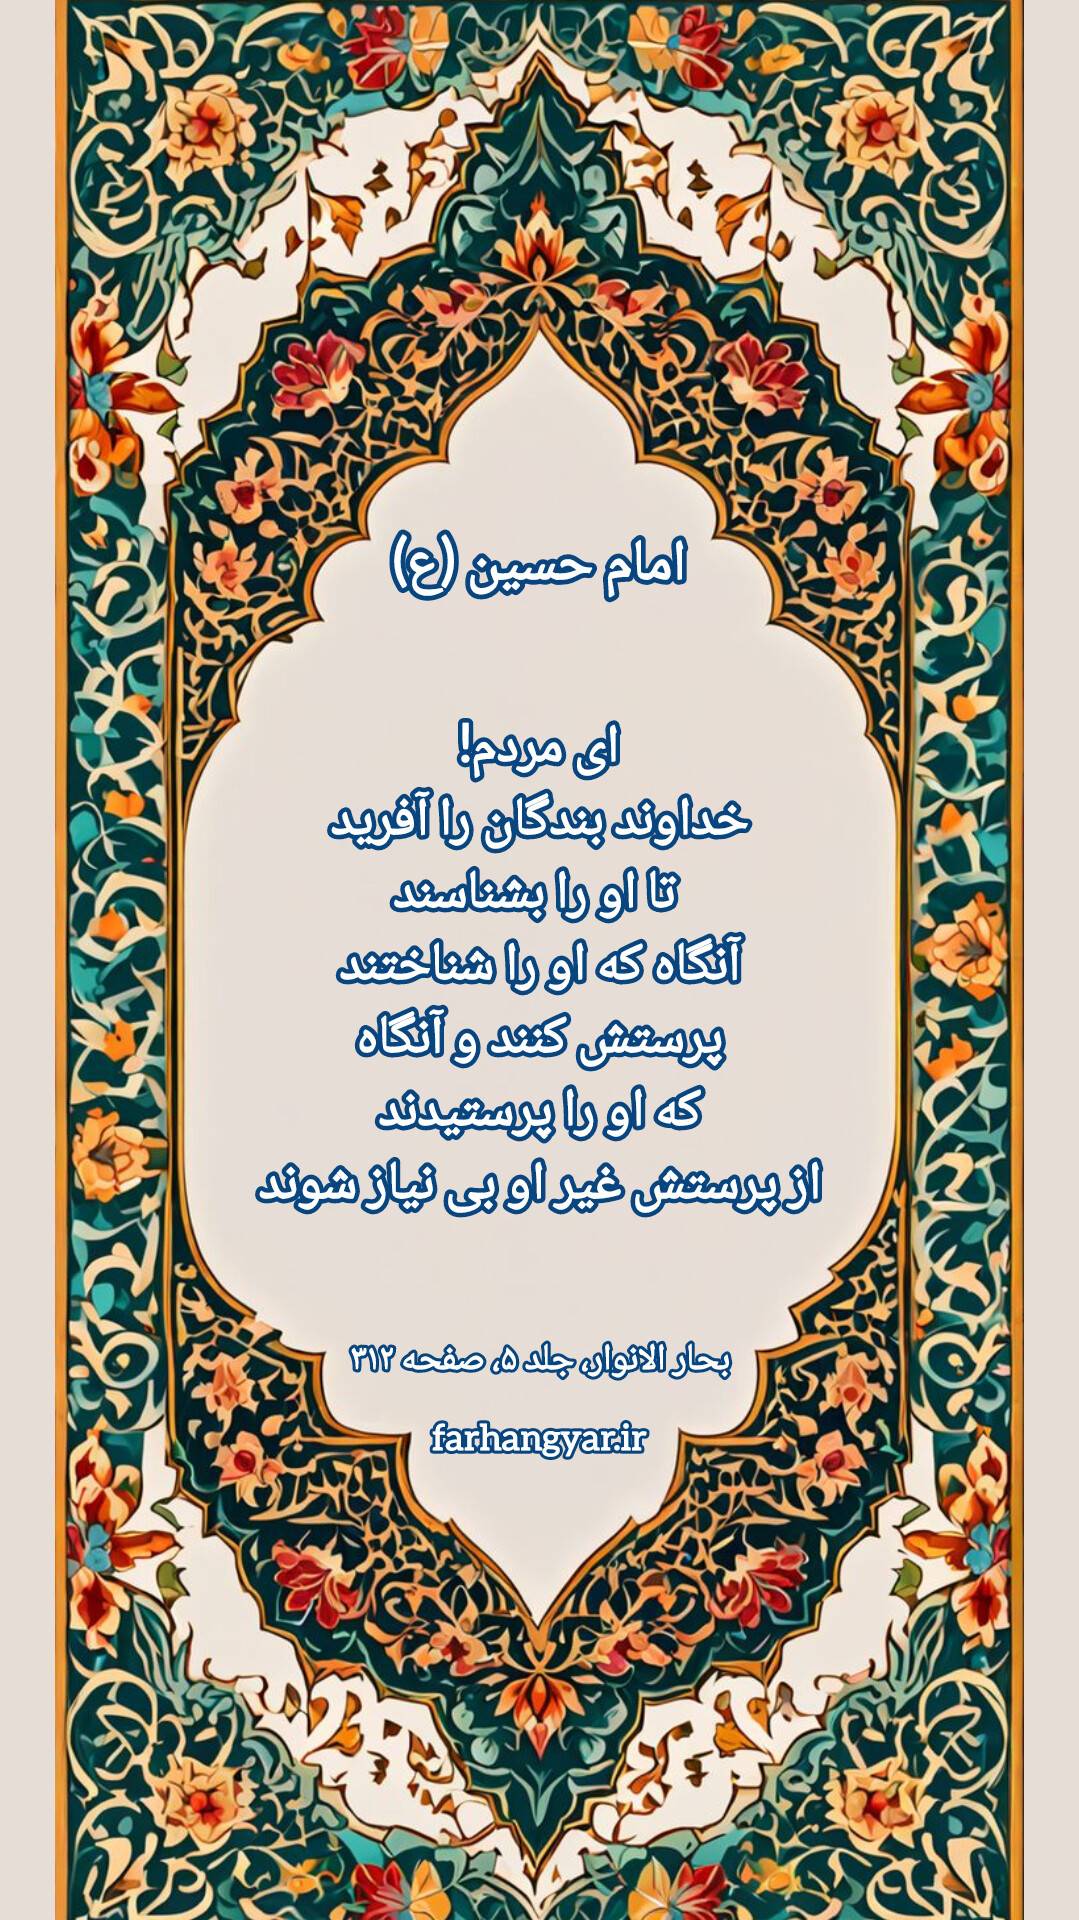 امام حسین (ع)
ای مردم!
خداوند بندگان را آفرید
تا او را بشناسند
آنگاه که او را شناختند
پرستش کنند و آنگاه
که او را پرستیدند
از پرستش غیر او بی نیاز شوند
بحار الانوار، جلد ۵، صفحه ۳۱۲
farhangyar.ir